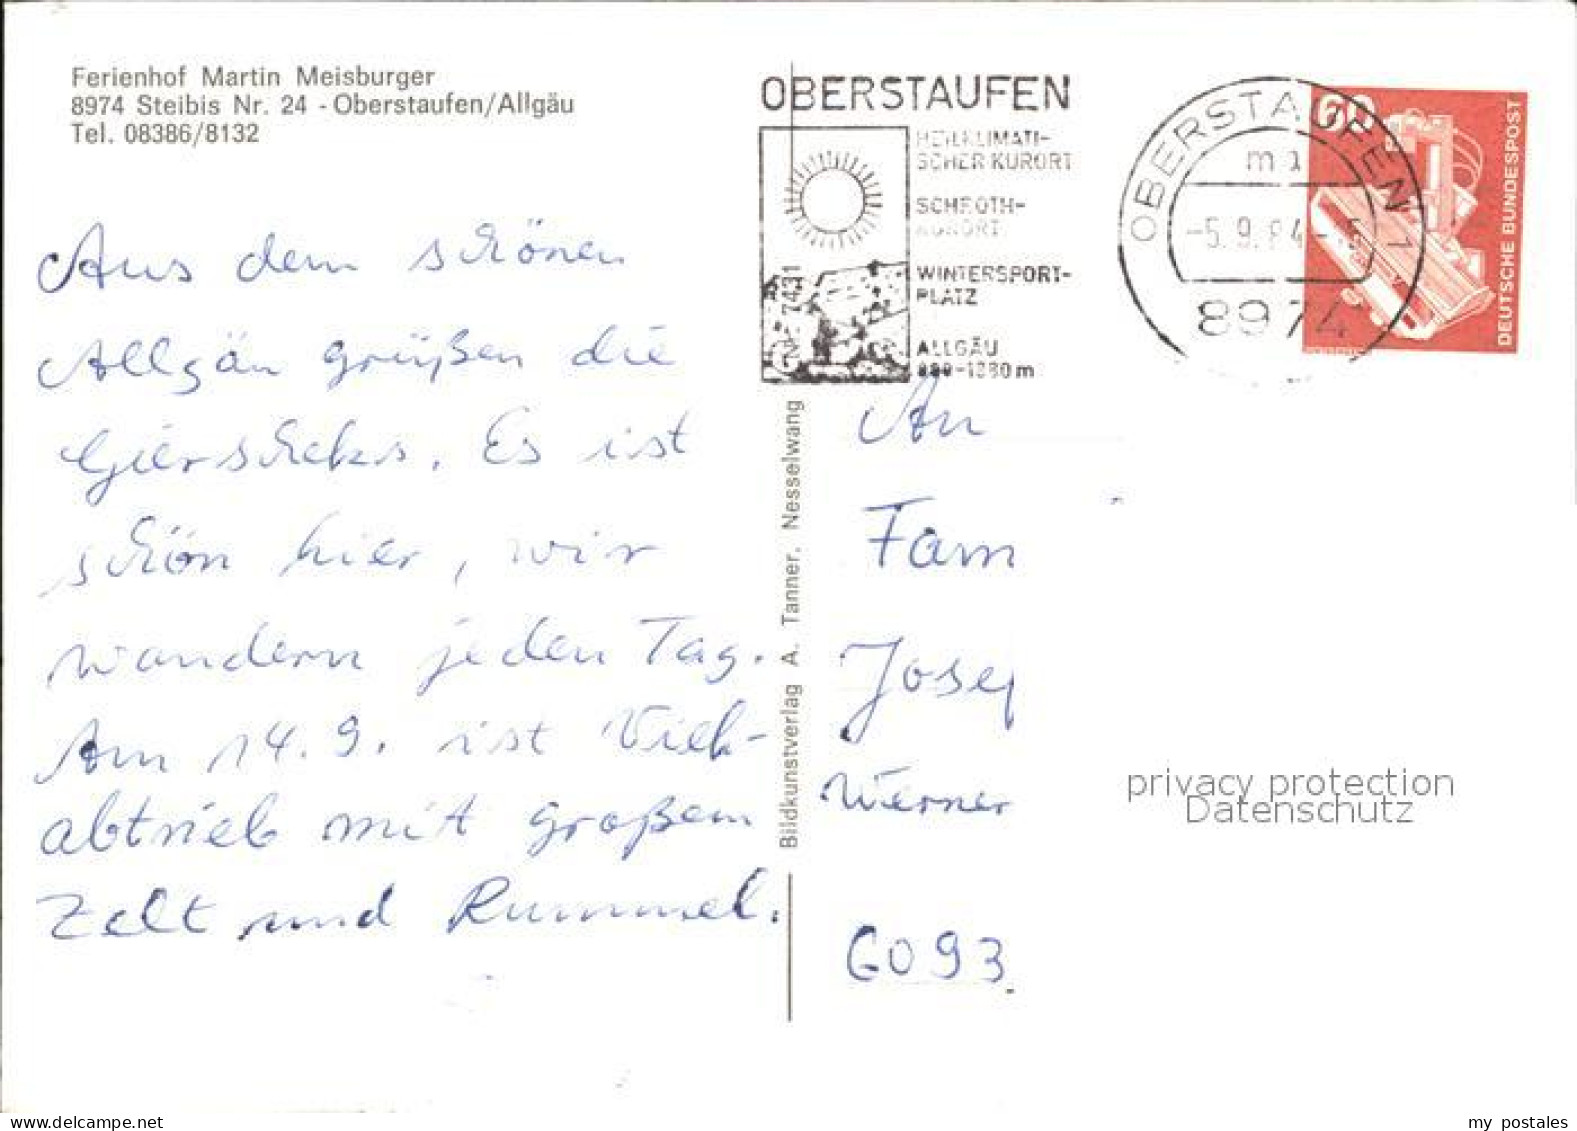 Ferienhof Martin Meisburger
8974 Steibis Nr. 24 - Oberstaufen/Allgäu
Tel. 08386/8132
Aus dem schönen
Allgäu grüßen die
Gierscheks. Es ist
schön hier, wir
wandern jeden Tag.
Am 14.9. ist Vieh-
abtrieb mit großem
Zelt und Rummel.
OBERSTAUFEN
HEILKLIMATI-
SCHER KURORT
SCHROTH-
KURORT
WINTERSPORT-
PLATZ
ALLGÄU
m
7431
Bildkunstverlag A. Tanner, Nesselwang
OBERSTAUFEN 1
-5.9.84-
8974
60
DEUTSCHE BUNDESPOST
An
Fam
Josef
Werner
6093
privacy protection
Datenschutz
my postales